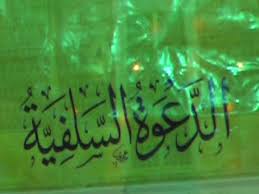 الدَّعْوَةُ السَّلَفِيَّةُ